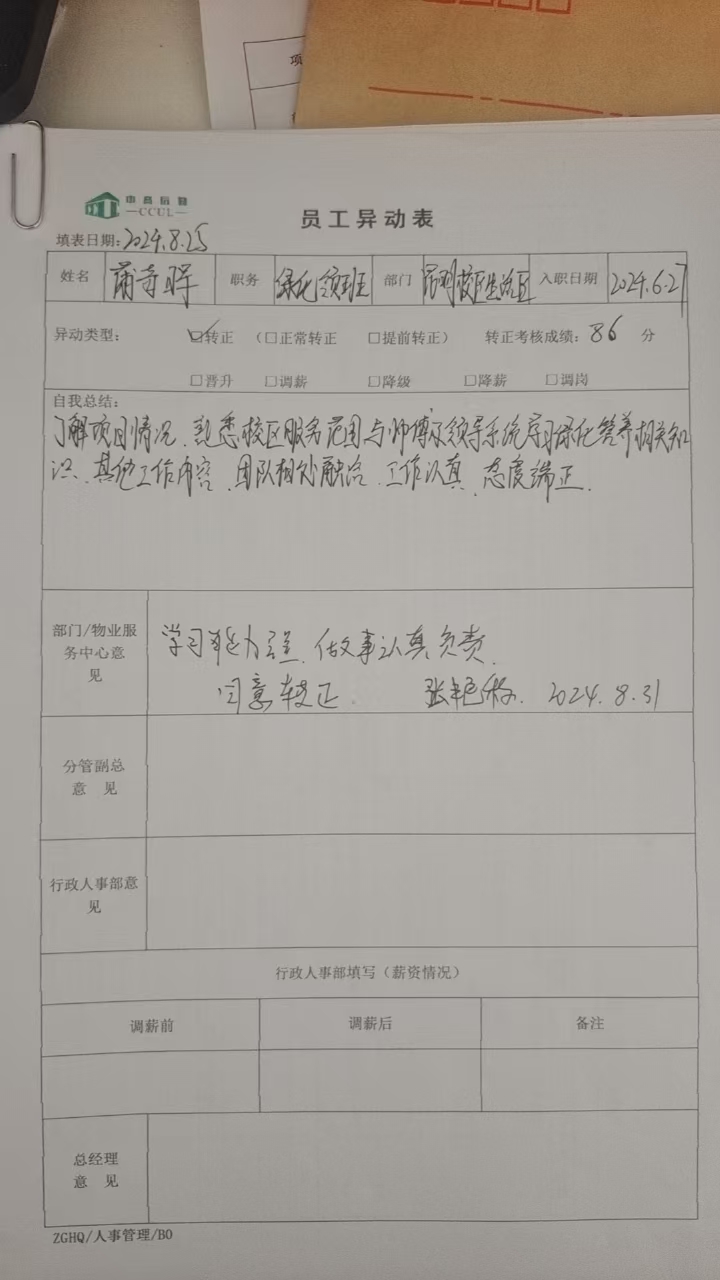 项
中商后勤
—CCUL—
员工异动表
填表日期:2024.8.25
姓名 蒲 晖 职务 绿化领班 部门 校区生活区 入职日期 2024.6.27
异动类型: ☑转正 (□正常转正 □提前转正) 转正考核成绩: 86 分
□晋升 □调薪 □降级 □降薪 □调岗
自我总结:
了解项目情况、熟悉校区服务范围与师傅及领导系统学习绿化管养相关知
识、其他工作内容、团队相处融洽、工作认真、态度端正.
部门/物业服
务中心意
见
学习能力强、做事认真负责.
同意转正. 张艳 . 2024.8.31
分管副总
意 见
行政人事部意
见
行政人事部填写(薪资情况)
调薪前 调薪后 备注
总经理
意 见
ZGHQ/人事管理/B0